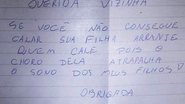 QUERIDA VIZINHA
SE VOCÊ NÃO CONSEGUE
CALAR SUA FILHA ARRANJE
QUEM CALE POIS O
CHORO DELA ATRAPALHA
O SONO DOS MEUS FILHOS
OBRIGADA